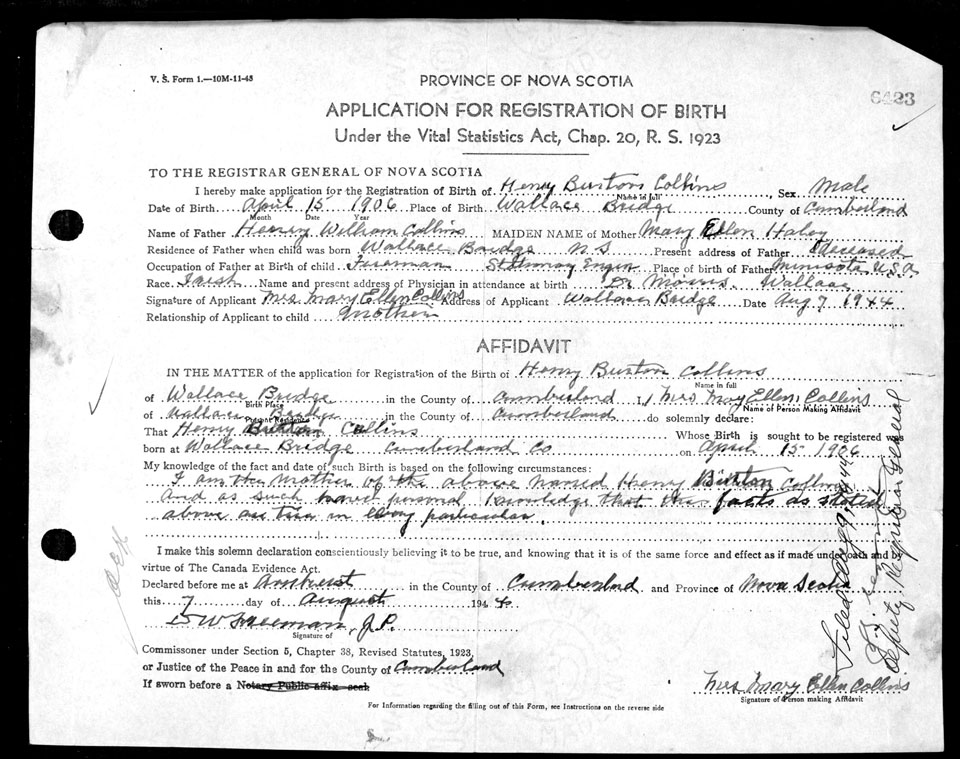 V. S. Form 1.—10M-11-43
PROVINCE OF NOVA SCOTIA
6423
APPLICATION FOR REGISTRATION OF BIRTH
Under the Vital Statistics Act, Chap. 20, R. S. 1923
TO THE REGISTRAR GENERAL OF NOVA SCOTIA
I hereby make application for the Registration of Birth of Henry Burton Collins, Sex Male
Name in full
Date of Birth April 15 1906 Place of Birth Wallace Bridge County of Cumberland
Month Date Year
Name of Father Henry William Collins MAIDEN NAME of Mother Mary Ellen Haley
Residence of Father when child was born Wallace Bridge N S Present address of Father Deceased
Occupation of Father at Birth of child Fireman Place of birth of Father Minisota U.S.A
Race Irish Name and present address of Physician in attendance at birth Dr Morris. Wallace
Signature of Applicant Mrs Mary Ellen Collins Address of Applicant Wallace Bridge Date Aug 7 1944
Relationship of Applicant to child Mother
AFFIDAVIT
IN THE MATTER of the application for Registration of the Birth of Henry Burton Collins
Name in full
of Wallace Bridge in the County of Cumberland I, Mrs Mary Ellen Collins
Birth Place Name of Person Making Affidavit
of Wallace Bridge in the County of Cumberland do solemnly declare:
Present Residence
That Henry Burton Collins Whose Birth is sought to be registered was
born at Wallace Bridge Cumberland Co on April 15 1906
My knowledge of the fact and date of such Birth is based on the following circumstances:
I am the Mother of the above named Henry Burton Collins
and as such have personal knowledge that the facts as stated
above are true in every particular.
I make this solemn declaration conscientiously believing it to be true, and knowing that it is of the same force and effect as if made under oath and by
virtue of The Canada Evidence Act.
Declared before me at Amherst in the County of Cumberland and Province of Nova Scotia
this 7 day of August 1944
Freeman, J.P.
Signature of
Commissioner under Section 5, Chapter 38, Revised Statutes, 1923,
or Justice of the Peace in and for the County of Cumberland
If sworn before a Notary Public affix seal
Mrs Mary Ellen Collins
Signature of Person making Affidavit
For Information regarding the filling out of this Form, see Instructions on the reverse side
Filed Aug 9, 1944
Deputy Registrar General